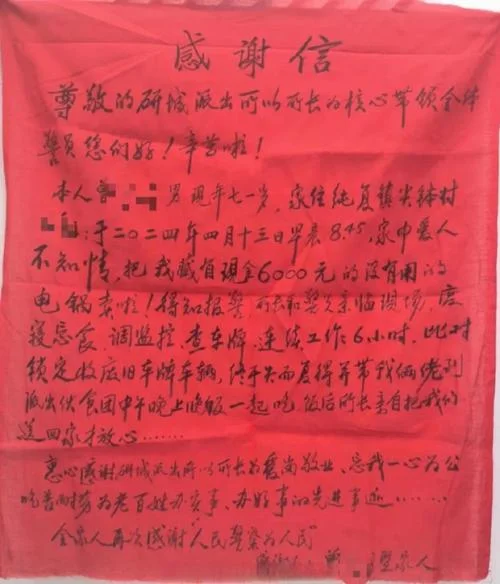 感谢信
尊敬的研城派出所以所长为核心带领全体
警员您们好！辛苦啦！
本人曾 男现年七一岁，家住纯复镇尖钵村
：于二〇二四年四月十三日早晨8.45，家中爱人
不知情，把我藏有现金6000元的没有用的
电锅卖啦！得知报警所长和警员亲临现场，废
寝忘食、调监控、查车牌、连续工作6小时、此时
锁定收废旧车牌车辆，终于失而复得并带我俩佬到
派出伙食团中午晚上晚饭一起吃，饭后所长亲自把我们
送回家才放心……
衷心感谢研城派出所以所长的爱岗敬业、忘我一心为公
吃苦耐劳为老百姓办实事、办好事的先进事迹……
全家人再次感谢“人民警察为人民”
暨家人